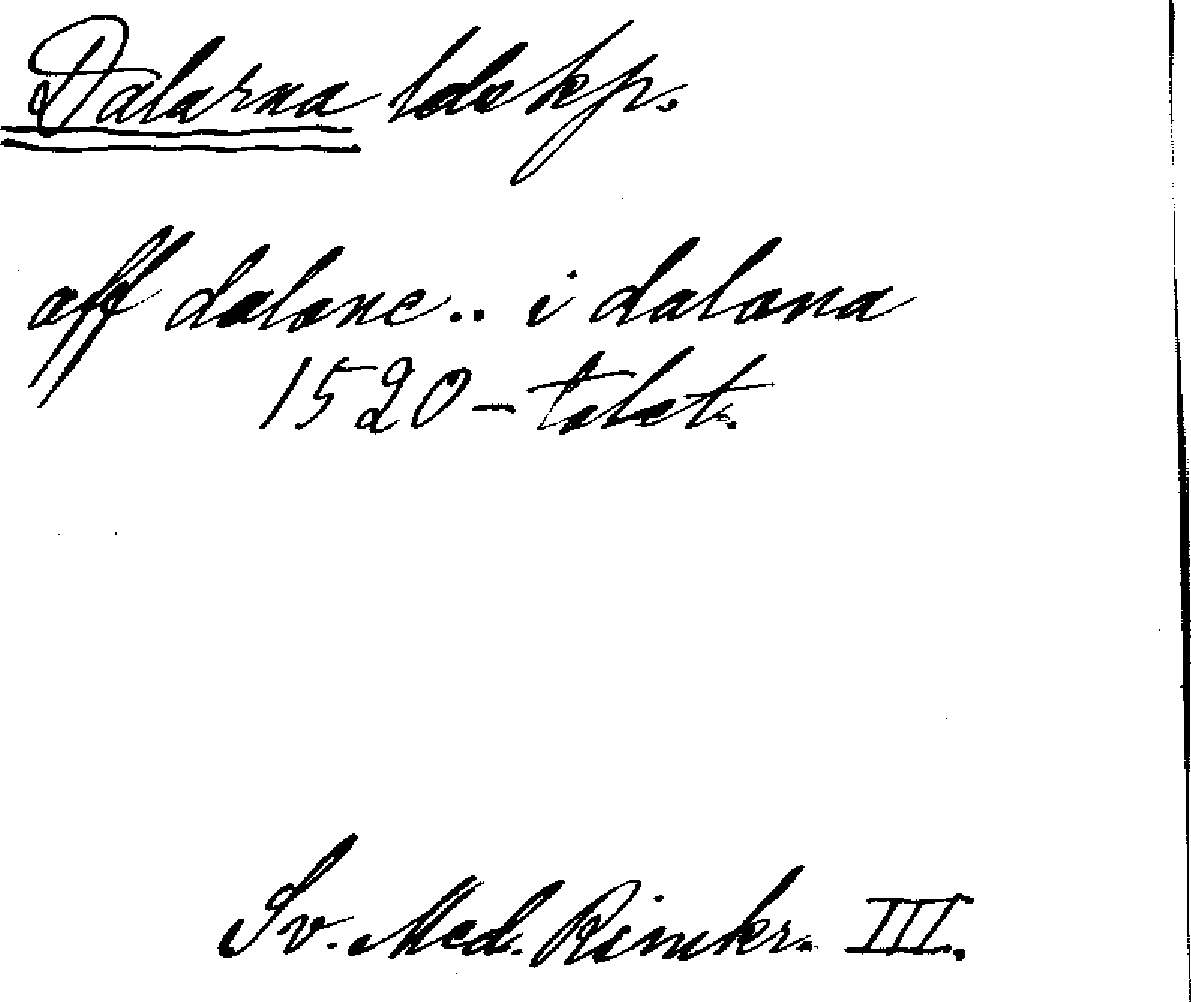 Dalarna ldskp.
aff dalane.. i dalana
1520-talet.
Sv. Med. Rimkr. III.